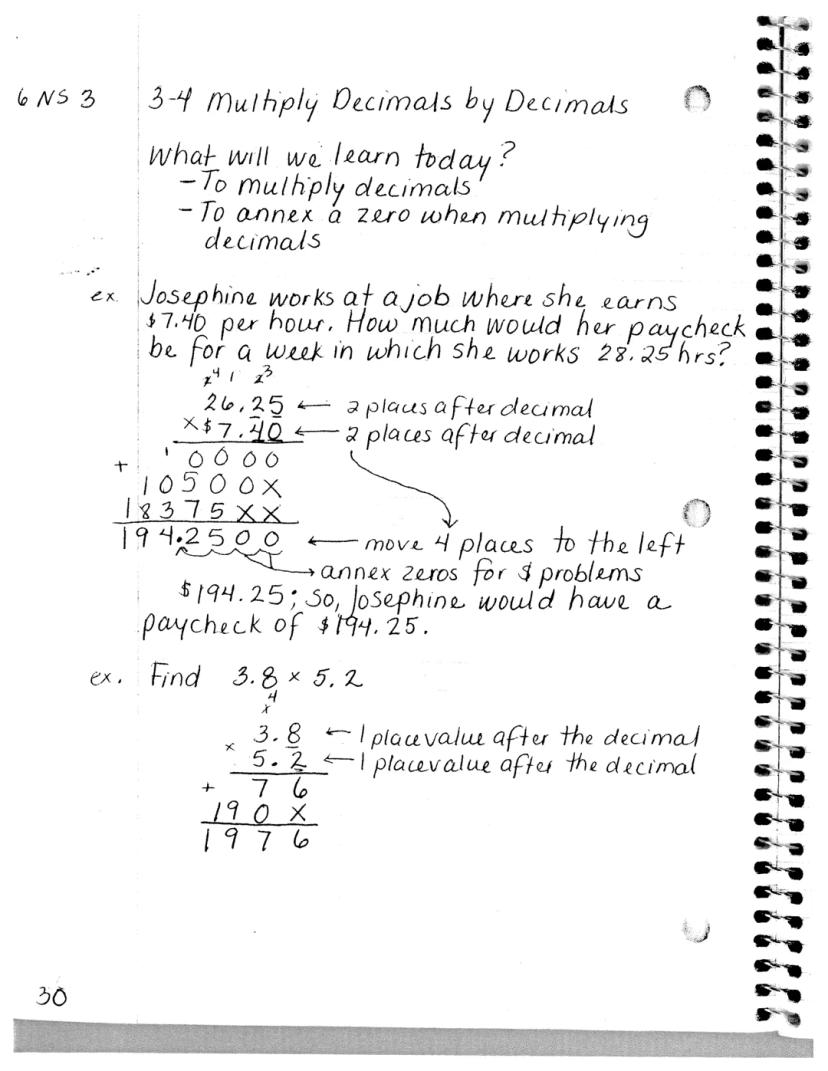 6 NS 3 3-4 Multiply Decimals by Decimals
What will we learn today?
- To multiply decimals
- To annex a zero when multiplying
decimals
ex. Josephine works at a job where she earns
$7.40 per hour. How much would her paycheck
be for a week in which she works 28.25 hrs?
2 4 1 2 3
26.25 ← 2 places after decimal
×$7.40 ← 2 places after decimal
1 0000
+
10500X
18375XX
194.2500 ← move 4 places to the left
→ annex zeros for $ problems
$194.25; So, Josephine would have a
paycheck of $194.25.
ex. Find 3.8 × 5.2
4
3.8 ← 1 place value after the decimal
× 5.2 ← 1 place value after the decimal
+ 76
190X
1976
30